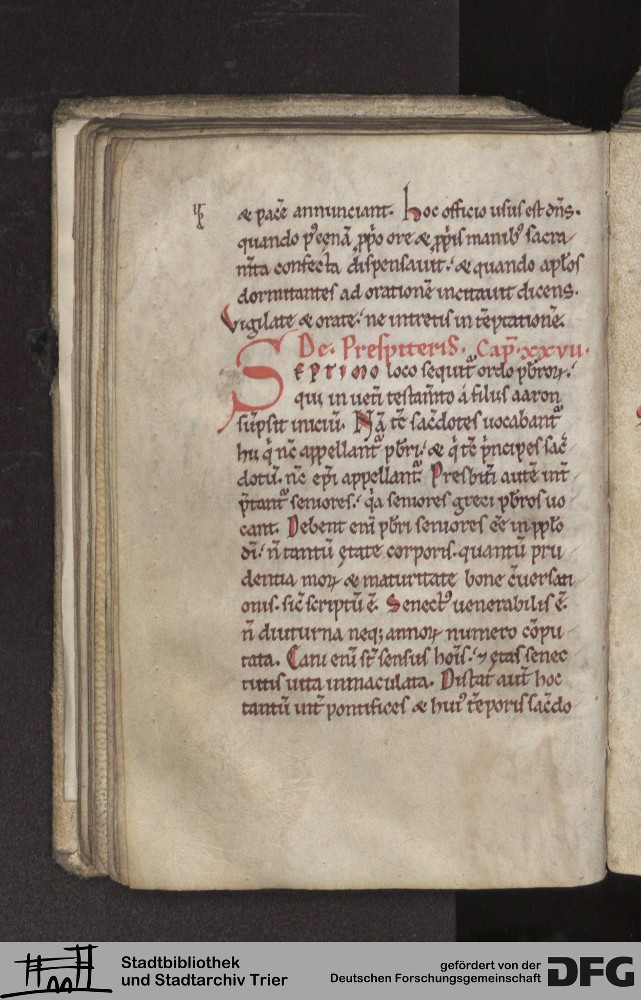 & pacē annunciant. Hoc officio usus est dn̄s.
quando p᷒ cęnā ꝓprio ore & ꝓpriis manib᷒ sacra
m̄ta confecta dispensauit. & quando apl̄os
dormitantes ad orationē incitauit dicens.
Vigilate & orate. ne intretis in tēptationē.
De. Prespiteris. Cap̄. xxvii.
Septimo loco sequit᷑ ordo pb̄roꝝ.
qui in ueti testam̄to á filiis aaron
sūpsit iniciū. Nā tc̄ sac̄dotes uocabant᷑
hii q̇ nc̄ appellant᷑ pb̄ri. & q̇ tc̄ p̄ncipes sac̄
dotū. nc̄ ep̄i appellant᷑. Presbit̄i autē int̄
p̄tant᷑ seniores. q̇a seniores greci pb̄ros uo
cant. Debent eni pb̄ri seniores ēe in ppl̄o
dī. n̄ tantū ętate corporis. quantū pru
dentia moꝝ & maturitate bone c̄uersati
onis. sic̄ scriptū ē. Senect᷒ uenerabilis ē.
n̄ diuturna neq; annoꝝ numero cōpu
tata. Cani eni st̄ sensus hoīs. ⁊ ętas senec
tutis uita inmaculata. Distat aut̄ hoc
tantū int̄ pontifices & hui᷒ tēporis sac̄do
Stadtbibliothek
und Stadtarchiv Trier
gefördert von der
Deutschen Forschungsgemeinschaft
DFG